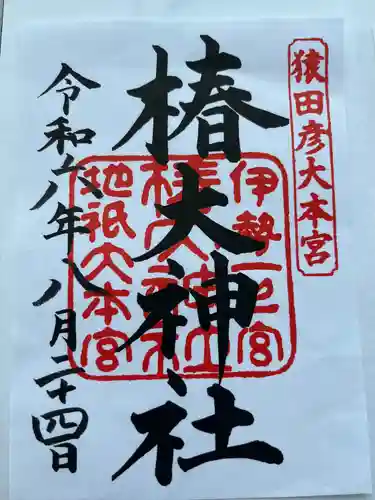 猿田彦大本宮
椿大神社
伊勢一之宮
地祇大本宮
令和六年八月二十四日